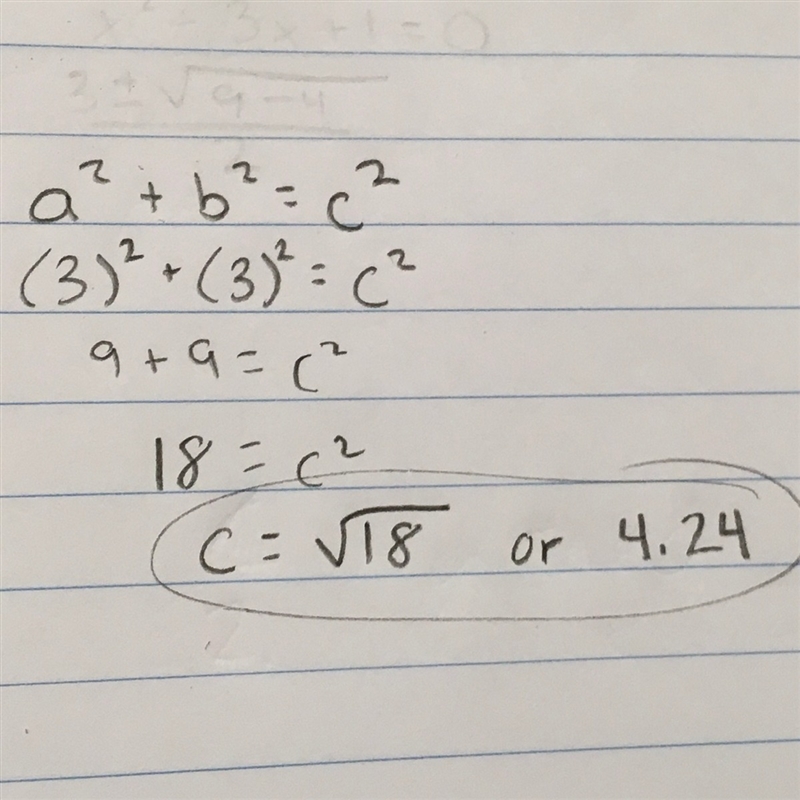 x² + 3x + 1 = 0
√9 - 4
a² + b² = c²
(3)² + (3)² = c²
9 + 9 = c²
18 = c²
c = √18 or 4.24